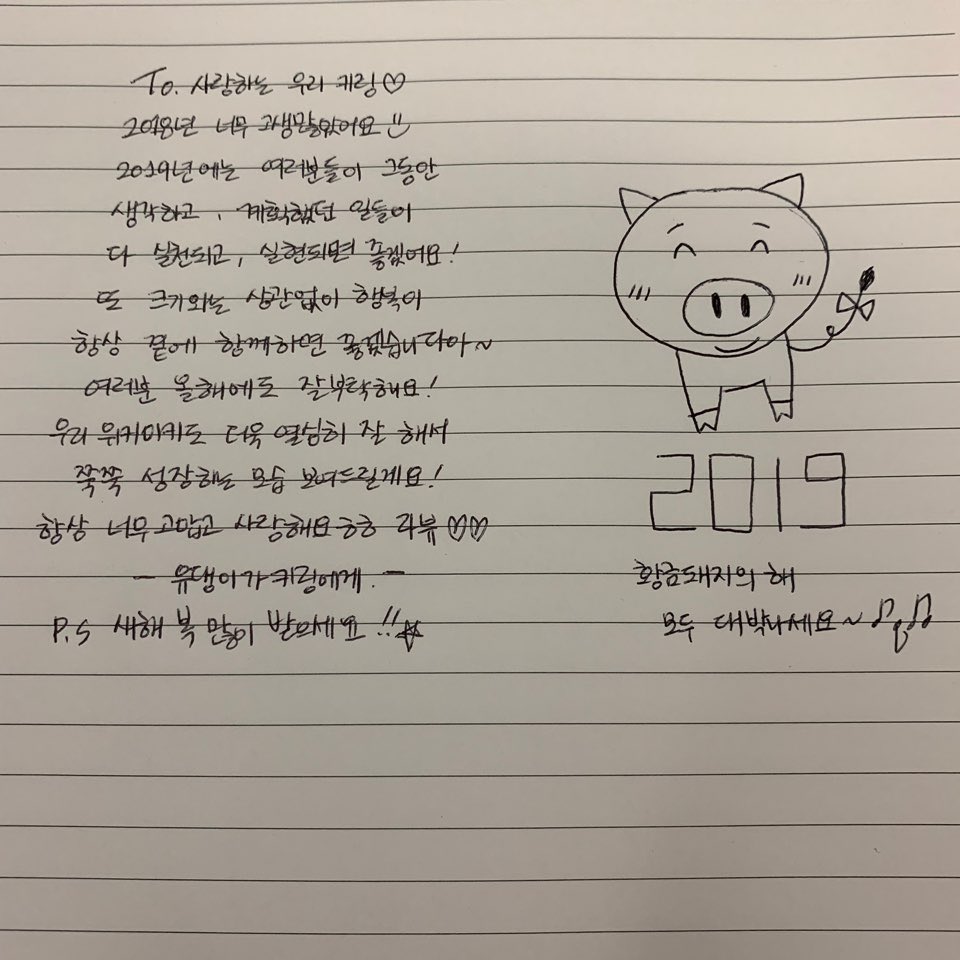 To. 사랑하는 우리 키링♡
2018년 너무 고생많았어요
2019년에는 여러분들이 그동안
생각하고, 계획했던 일들이
다 실천되고, 실현되면 좋겠어요!
또 크기와는 상관없이 행복이
항상 곁에 함께하면 좋겠습니다아~
여러분 올해에도 잘부탁해요!
우리 위키미키도 더욱 열심히 잘 해서
쭉쭉 성장하는 모습 보여드릴게요!
항상 너무 고맙고 사랑해요 ㅎㅎ 라뷰♡♡
- 유댕이가 키링에게. -
P.S 새해 복 많이 받으세요!!☆
2019
황금돼지의 해
모두 대박나세요~♫♪♫